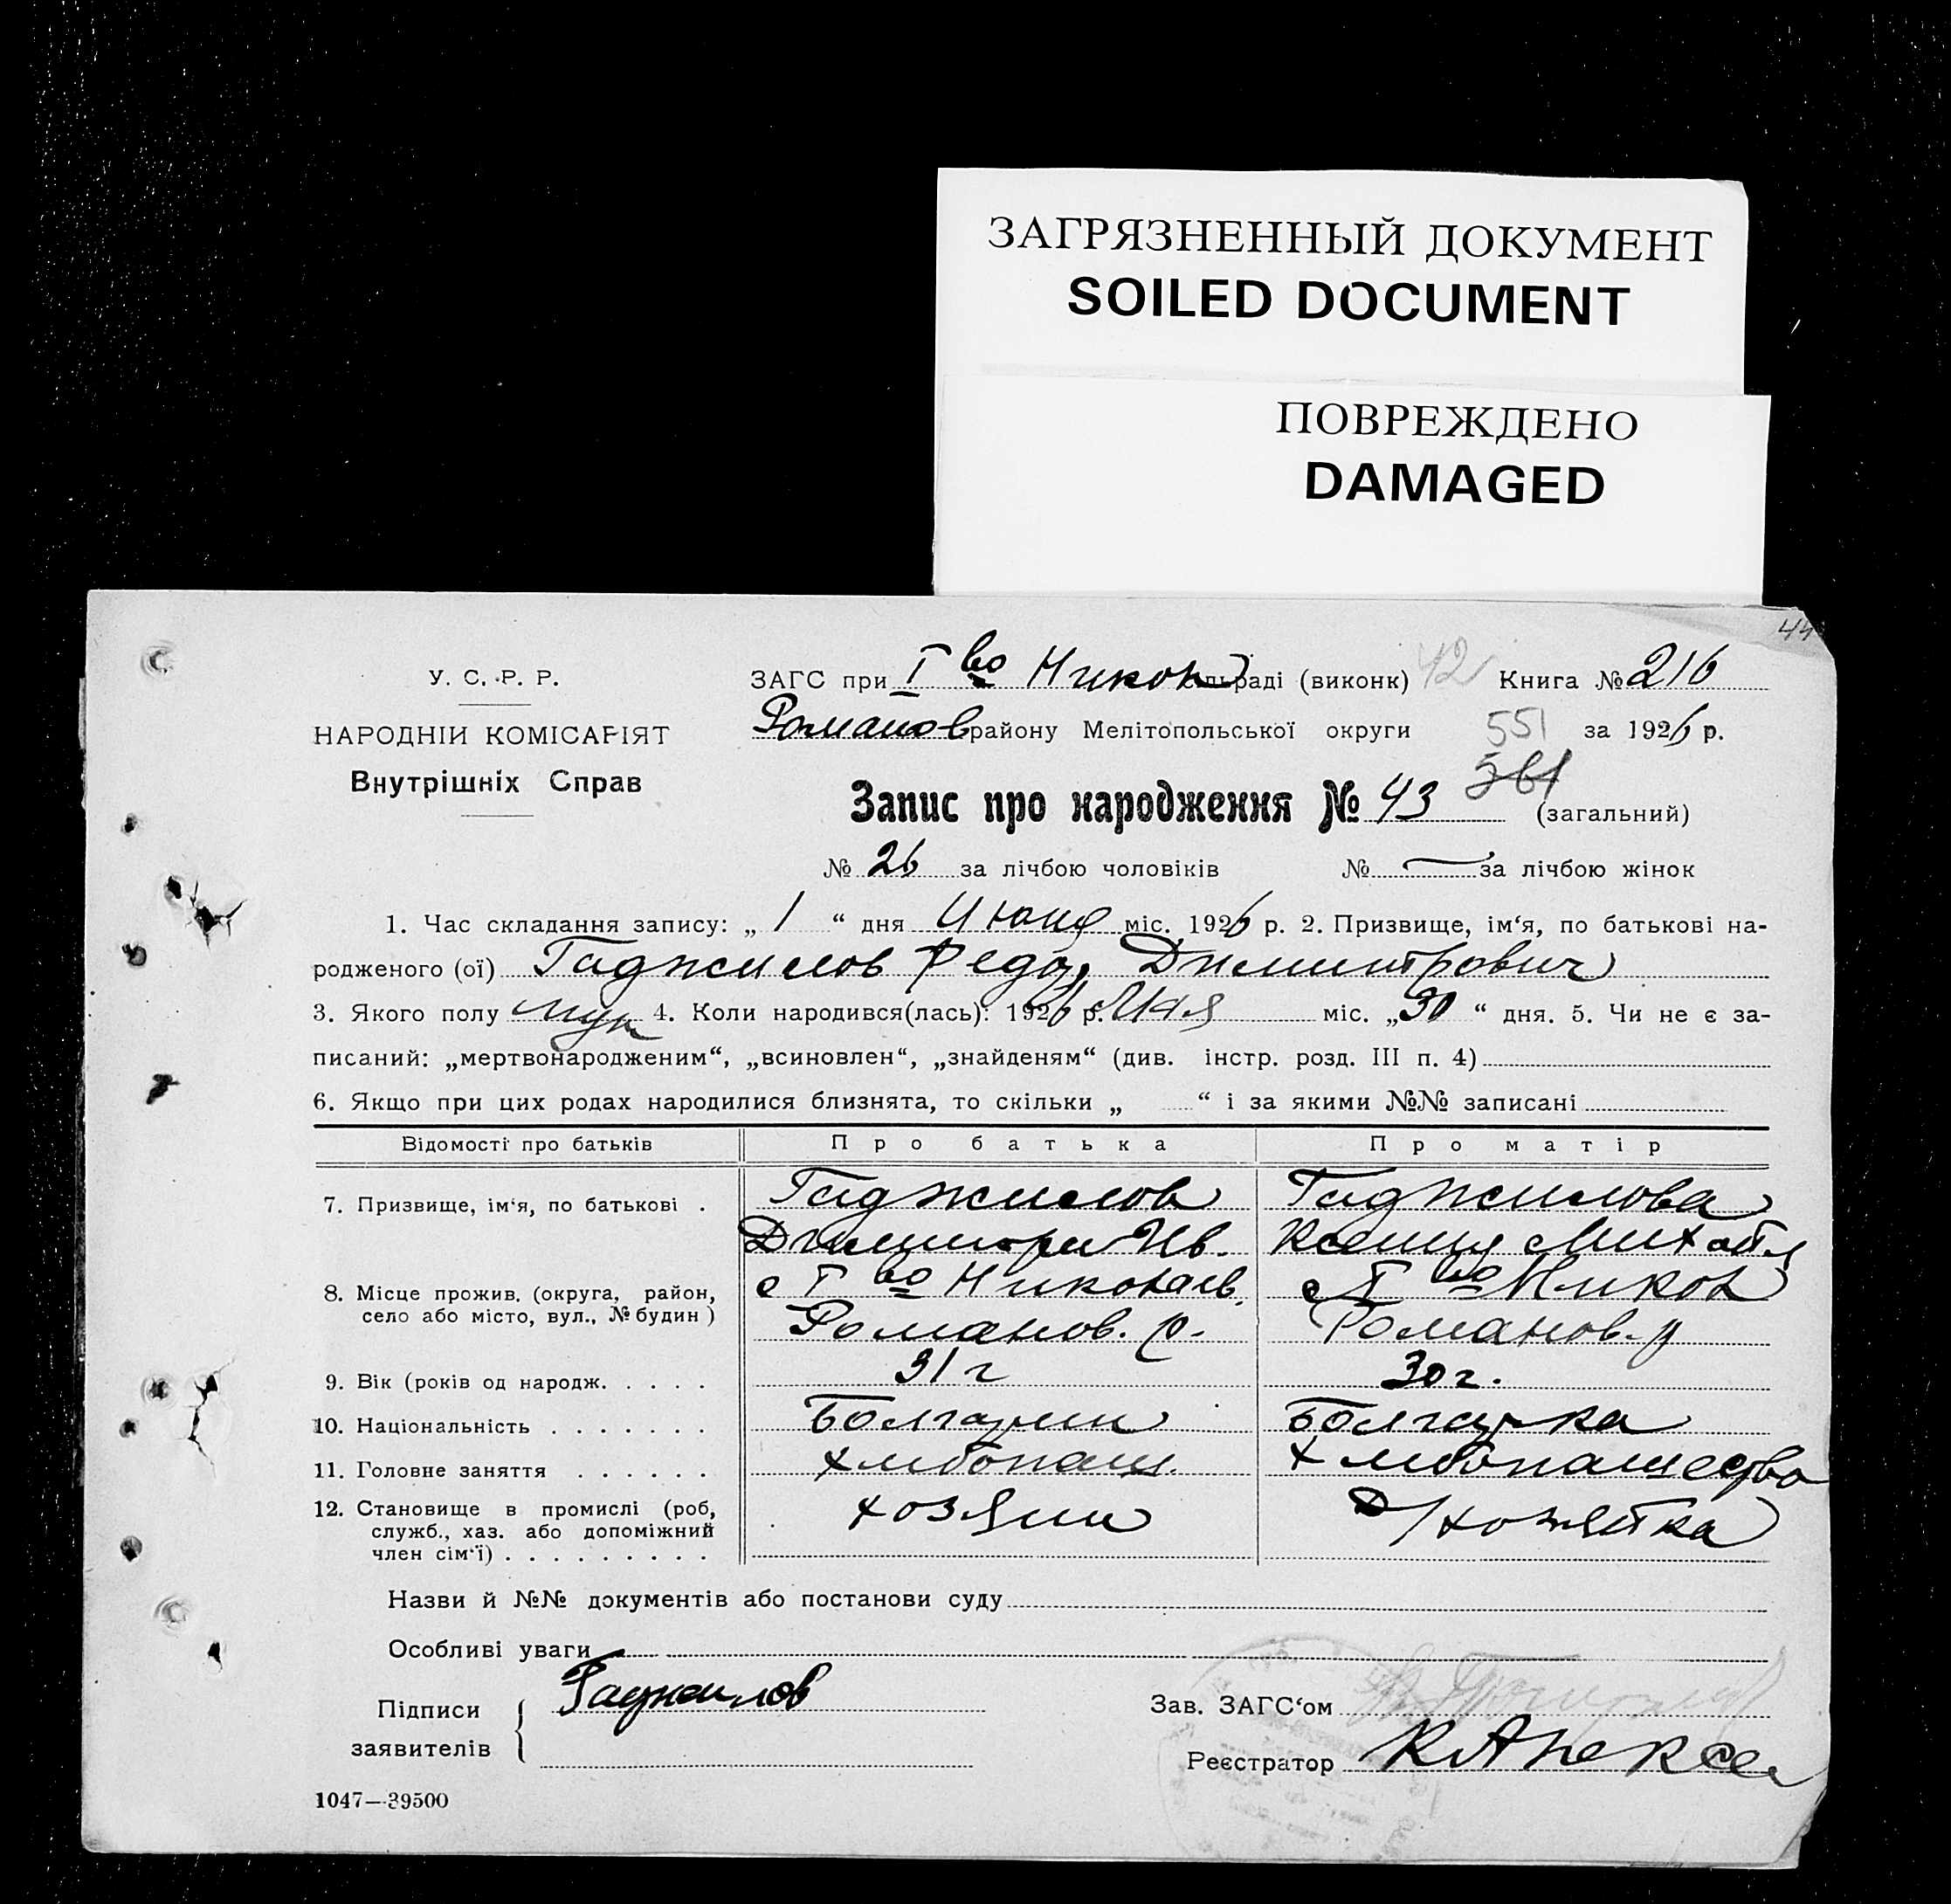 ЗАГРЯЗНЕННЫЙ ДОКУМЕНТ
SOILED DOCUMENT
ПОВРЕЖДЕНО
DAMAGED
44
У. С. Р. Р.
НАРОДНІЙ КОМІСАРІЯТ
Внутрішніх Справ
ЗАГС при Iво Никол сільраді (виконк) 42 Книга № 216
Романов району Мелітопольської округи 551 за 1926 р.
561
Запис про народження № 43 (загальний)
№ 26 за лічбою чоловіків № — за лічбою жінок
1. Час складання запису: „ 1 “ дня Июня міс. 1926 р. 2. Призвище, ім‘я, по батькові на-
родженого (ої) Гаджилов Федор Димитрович
3. Якого полу муж 4. Коли народився(лась): 1926 р. Мая міс. „30 “ дня. 5. Чи не є за-
писаний: „мертвонародженим“, „всиновлен“, „знайденям“ (див. інстр. розд. III п. 4)
6. Якщо при цих родах народилися близнята, то скільки „ “ і за якими №№ записані
Відомості про батьків Про батька Про матір
7. Призвище, ім‘я, по батькові . Гаджилов Гаджилова
Димитри Ив. Ксения Михайл
8. Місце прожив. (округа, район, с Iво Николаев. с Iво Никол
село або місто, вул., № будин ) Романов. р. Романов. р
9. Вік (років од народж. . . . . 31 г 30 г.
10. Національність . . . . . . . Болгарин Болгарка
11. Головне заняття . . . . . . хлибопаш. хлибопашество
12. Становище в промислі (роб, хозяин д/хозяйка
служб., хаз. або допоміжний
член сім‘ї) . . . . . . . . .
Назви й №№ документів або постанови суду
Особливі уваги
Підписи Гаджилов Зав. ЗАГС‘ом
заявителів Реєстратор КАлексе
1047—39500